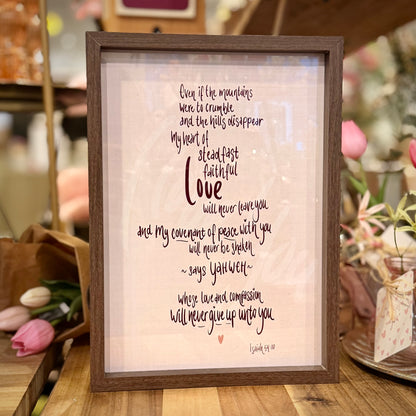 Even if the mountains
were to crumble
and the hills disappear
My heart of
steadfast
faithful
Love
will never leave you
and My covenant of peace with you
will never be shaken
~ says YAHWEH ~
whose love and compassion
will never give up unto you
Isaiah 54:10